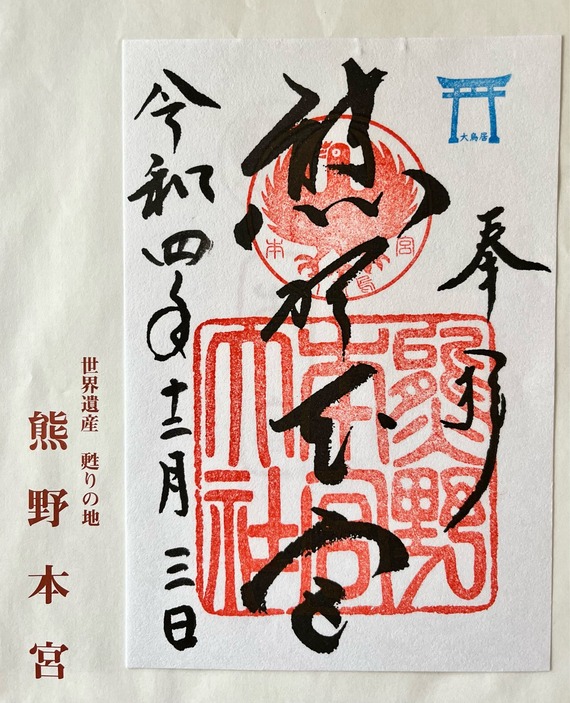 大鳥居
奉拝
熊野本宮
令和四年十二月三日
本宮
熊野
本宮
大社
世界遺産　甦りの地
熊野本宮